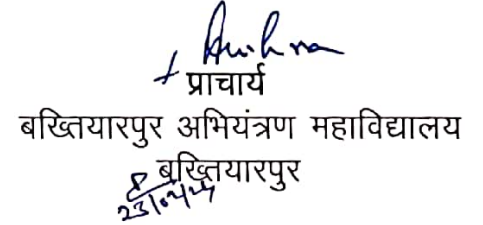 प्राचार्य
बख्तियारपुर अभियंत्रण महाविद्यालय
बख्तियारपुर